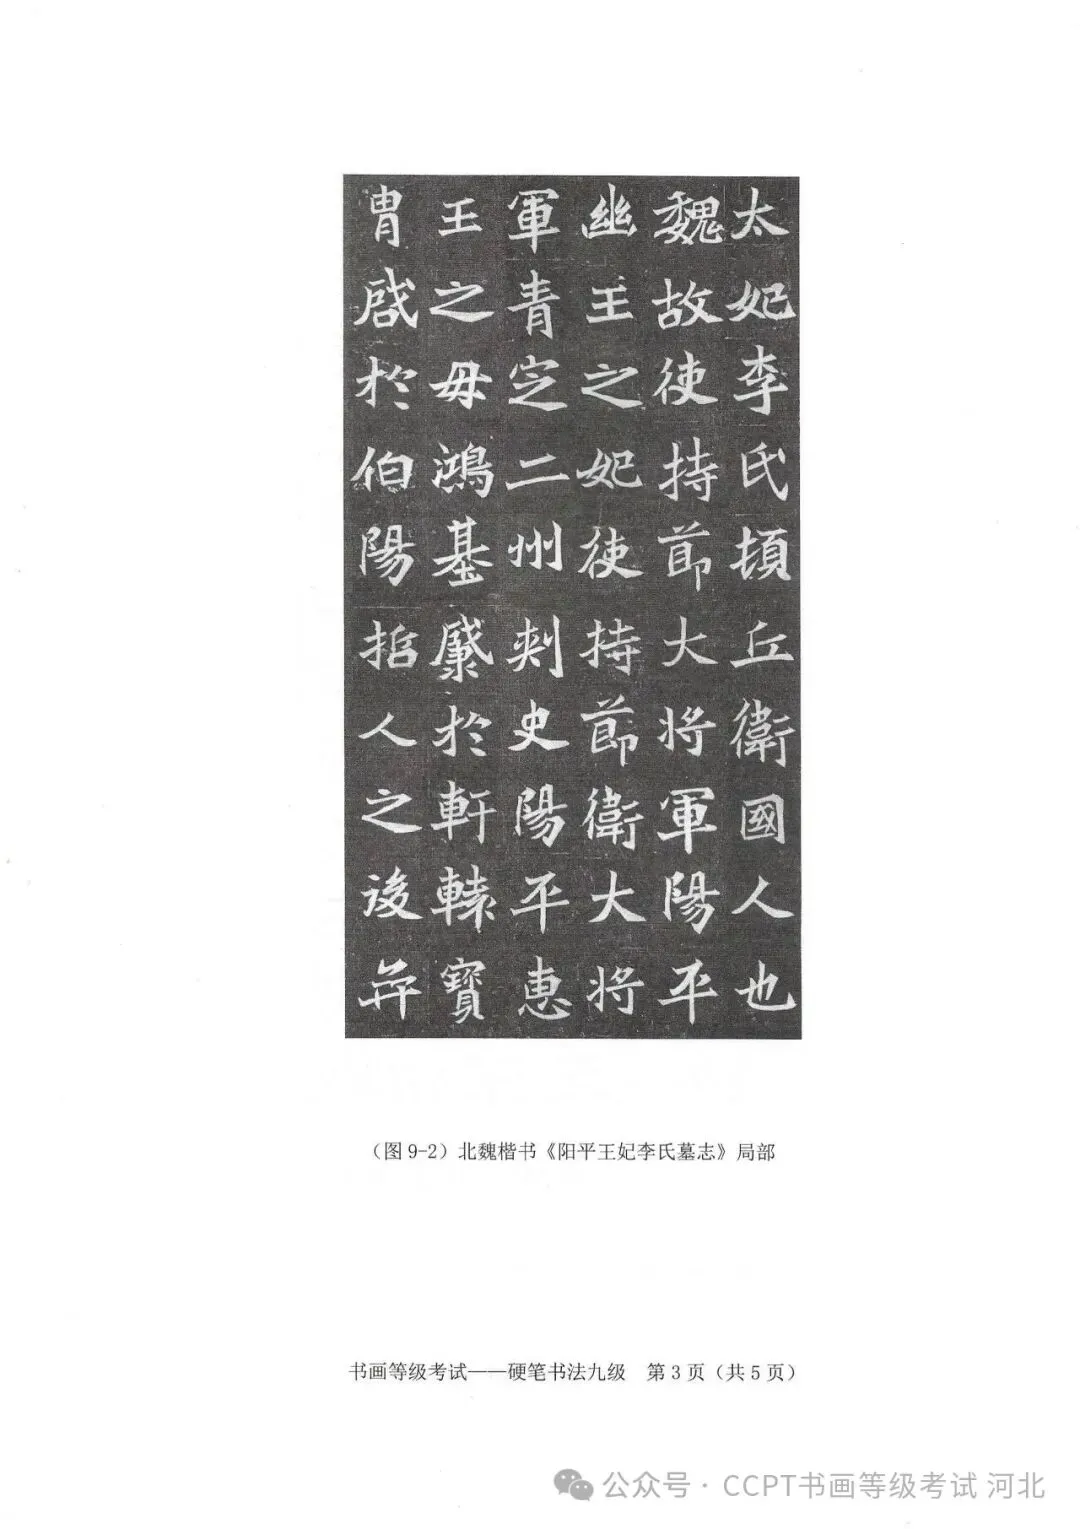 太妃李氏頓丘衛國人也
魏故使持節大將軍陽平
幽王之妃使持節衛大將
軍青定二州刺史陽平惠
王之母鴻基感於軒轅寶
胄啟於伯陽哲人之後弈
（图 9-2）北魏楷书《阳平王妃李氏墓志》局部
书画等级考试——硬笔书法九级 第 3 页（共 5 页）
公众号 · CCPT书画等级考试 河北